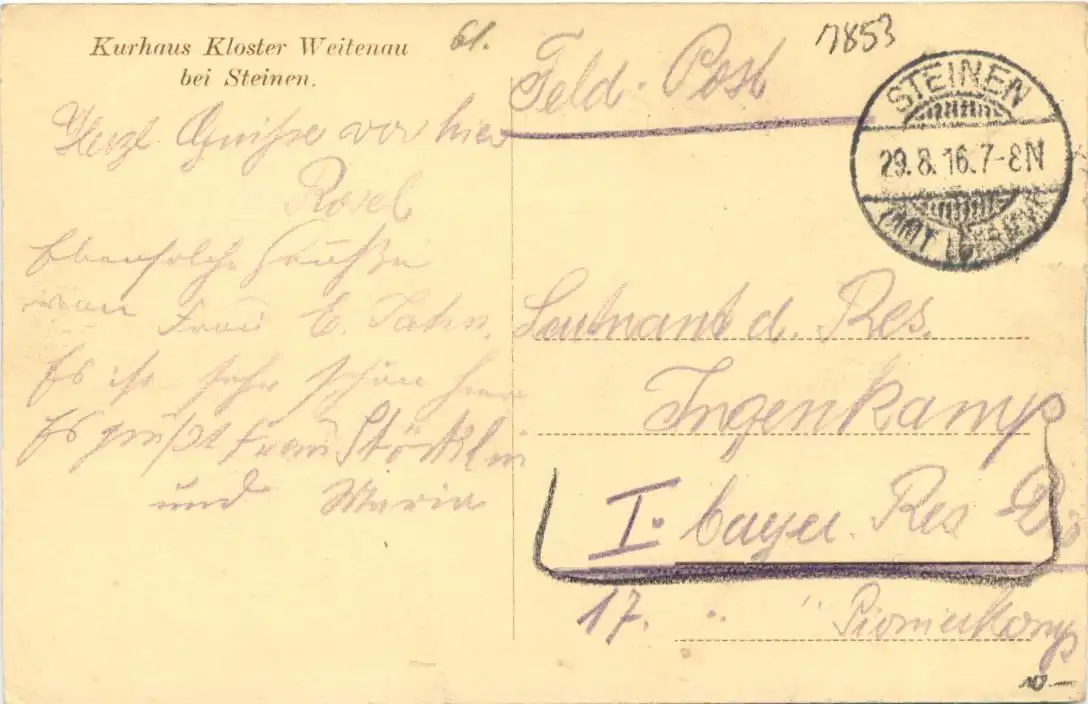 Kurhaus Kloster Weitenau
bei Steinen.
61.
7853
Feld-Post
STEINEN
29.8.16.7-8N
Herzl. Grüße von hier
Rosel
Ebensolche Grüße
von Frau E. Jahn.
Es ist sehr schön hier
Es grüßt Frau Stöcklin
und Maria
Leutnant d. Res.
Ingenkamp
I. bayer. Res. Div
17. " " Pionierkomp